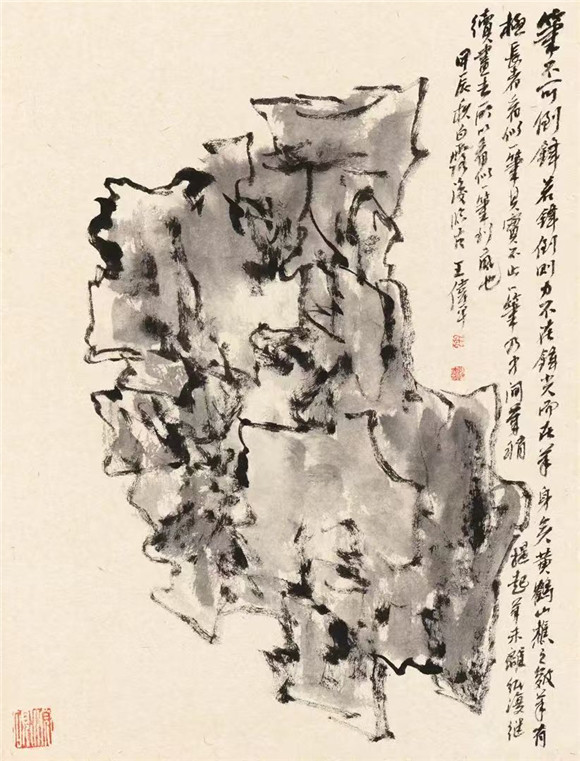 筆不可倒鋒若鋒倒則力不在鋒尖而在筆身矣黃鶴山樵之皴筆有
極長者看似一筆其實不止一筆乃中間筆稍提起筆未離紙復继
續畫去所以看似一筆到底也
甲辰秋白露後臨古王偉平